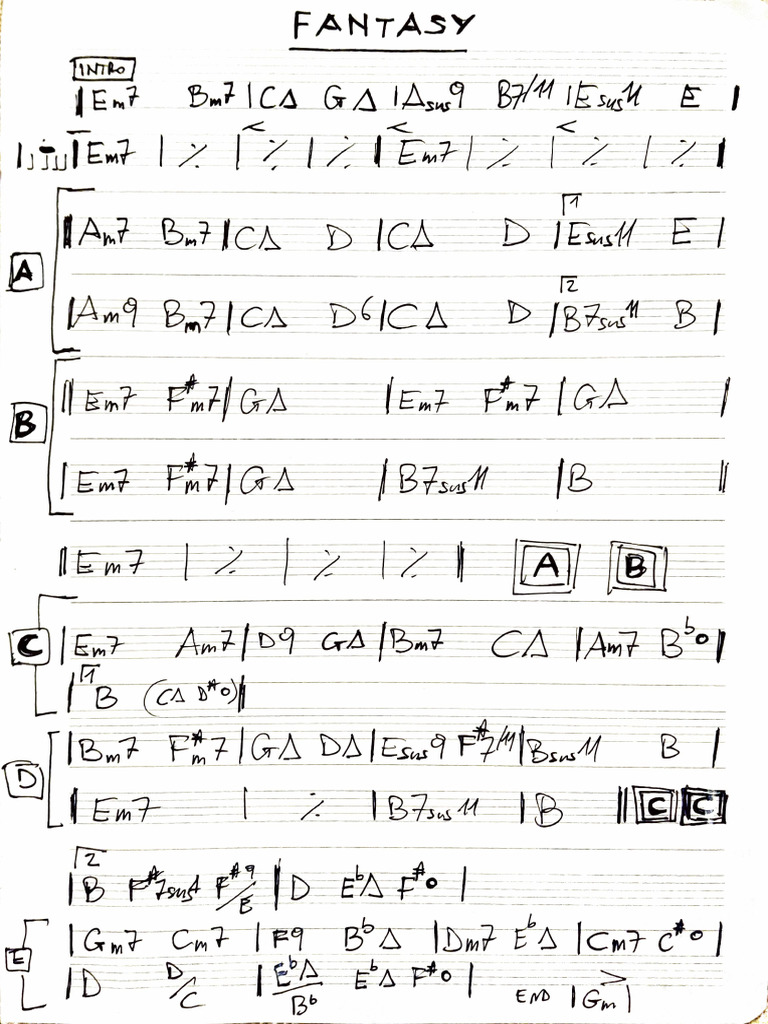 FANTASY
INTRO
| Em7 Bm7 | CΔ GΔ | Asus9 B7/11 | Esus11 E |
| Em7 | % | % | % | Em7 | % | % | % |
| Am7 Bm7 | CΔ D | CΔ D | 1 Esus11 E |
A
| Am9 Bm7 | CΔ D6 | CΔ D | 2 B7sus11 B |
|| Em7 F#m7 | GΔ | Em7 F#m7 | GΔ |
B
| Em7 F#m7 | GΔ | B7sus11 | B ||
|| Em7 | % | % | % || A B
C | Em7 Am7 | D9 GΔ | Bm7 CΔ | Am7 Bbo |
| 1 B (CΔ D#o) ||
| Bm7 F#m7 | GΔ DΔ | Esus9 F#7/11 | Bsus11 B |
D
| Em7 | % | B7sus11 | B || C C
2
| B F#7sus4 F#9/E | D EbΔ F#o |
E | Gm7 Cm7 | F9 BbΔ | Dm7 EbΔ | Cm7 C#o |
| D D/C | EbΔ/Bb EbΔ F#o | END | Gm |